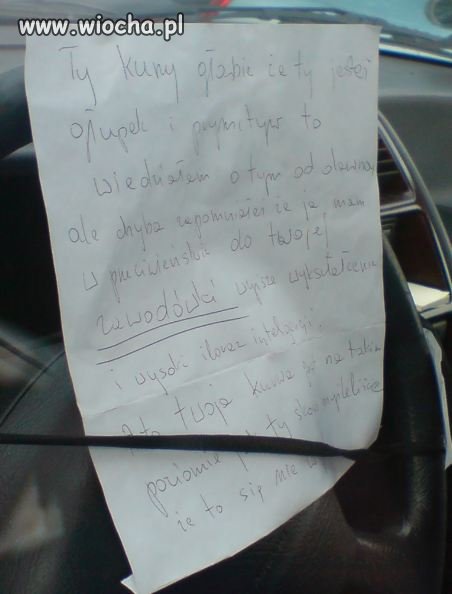 www.wiocha.pl
Ty kurwy głąbie że ty jesteś
głupek i prymityw to
wiedziałem o tym od dawna
ale chyba zapomniałeś że ja mam
w przeciwieństwie do twojej
zawodówki wyższe wykształcenie
i wysoki iloraz inteligencji.
A ta twoja kurwa jest na takim
poziomie jak ty skoro myśleliście
że to się nie